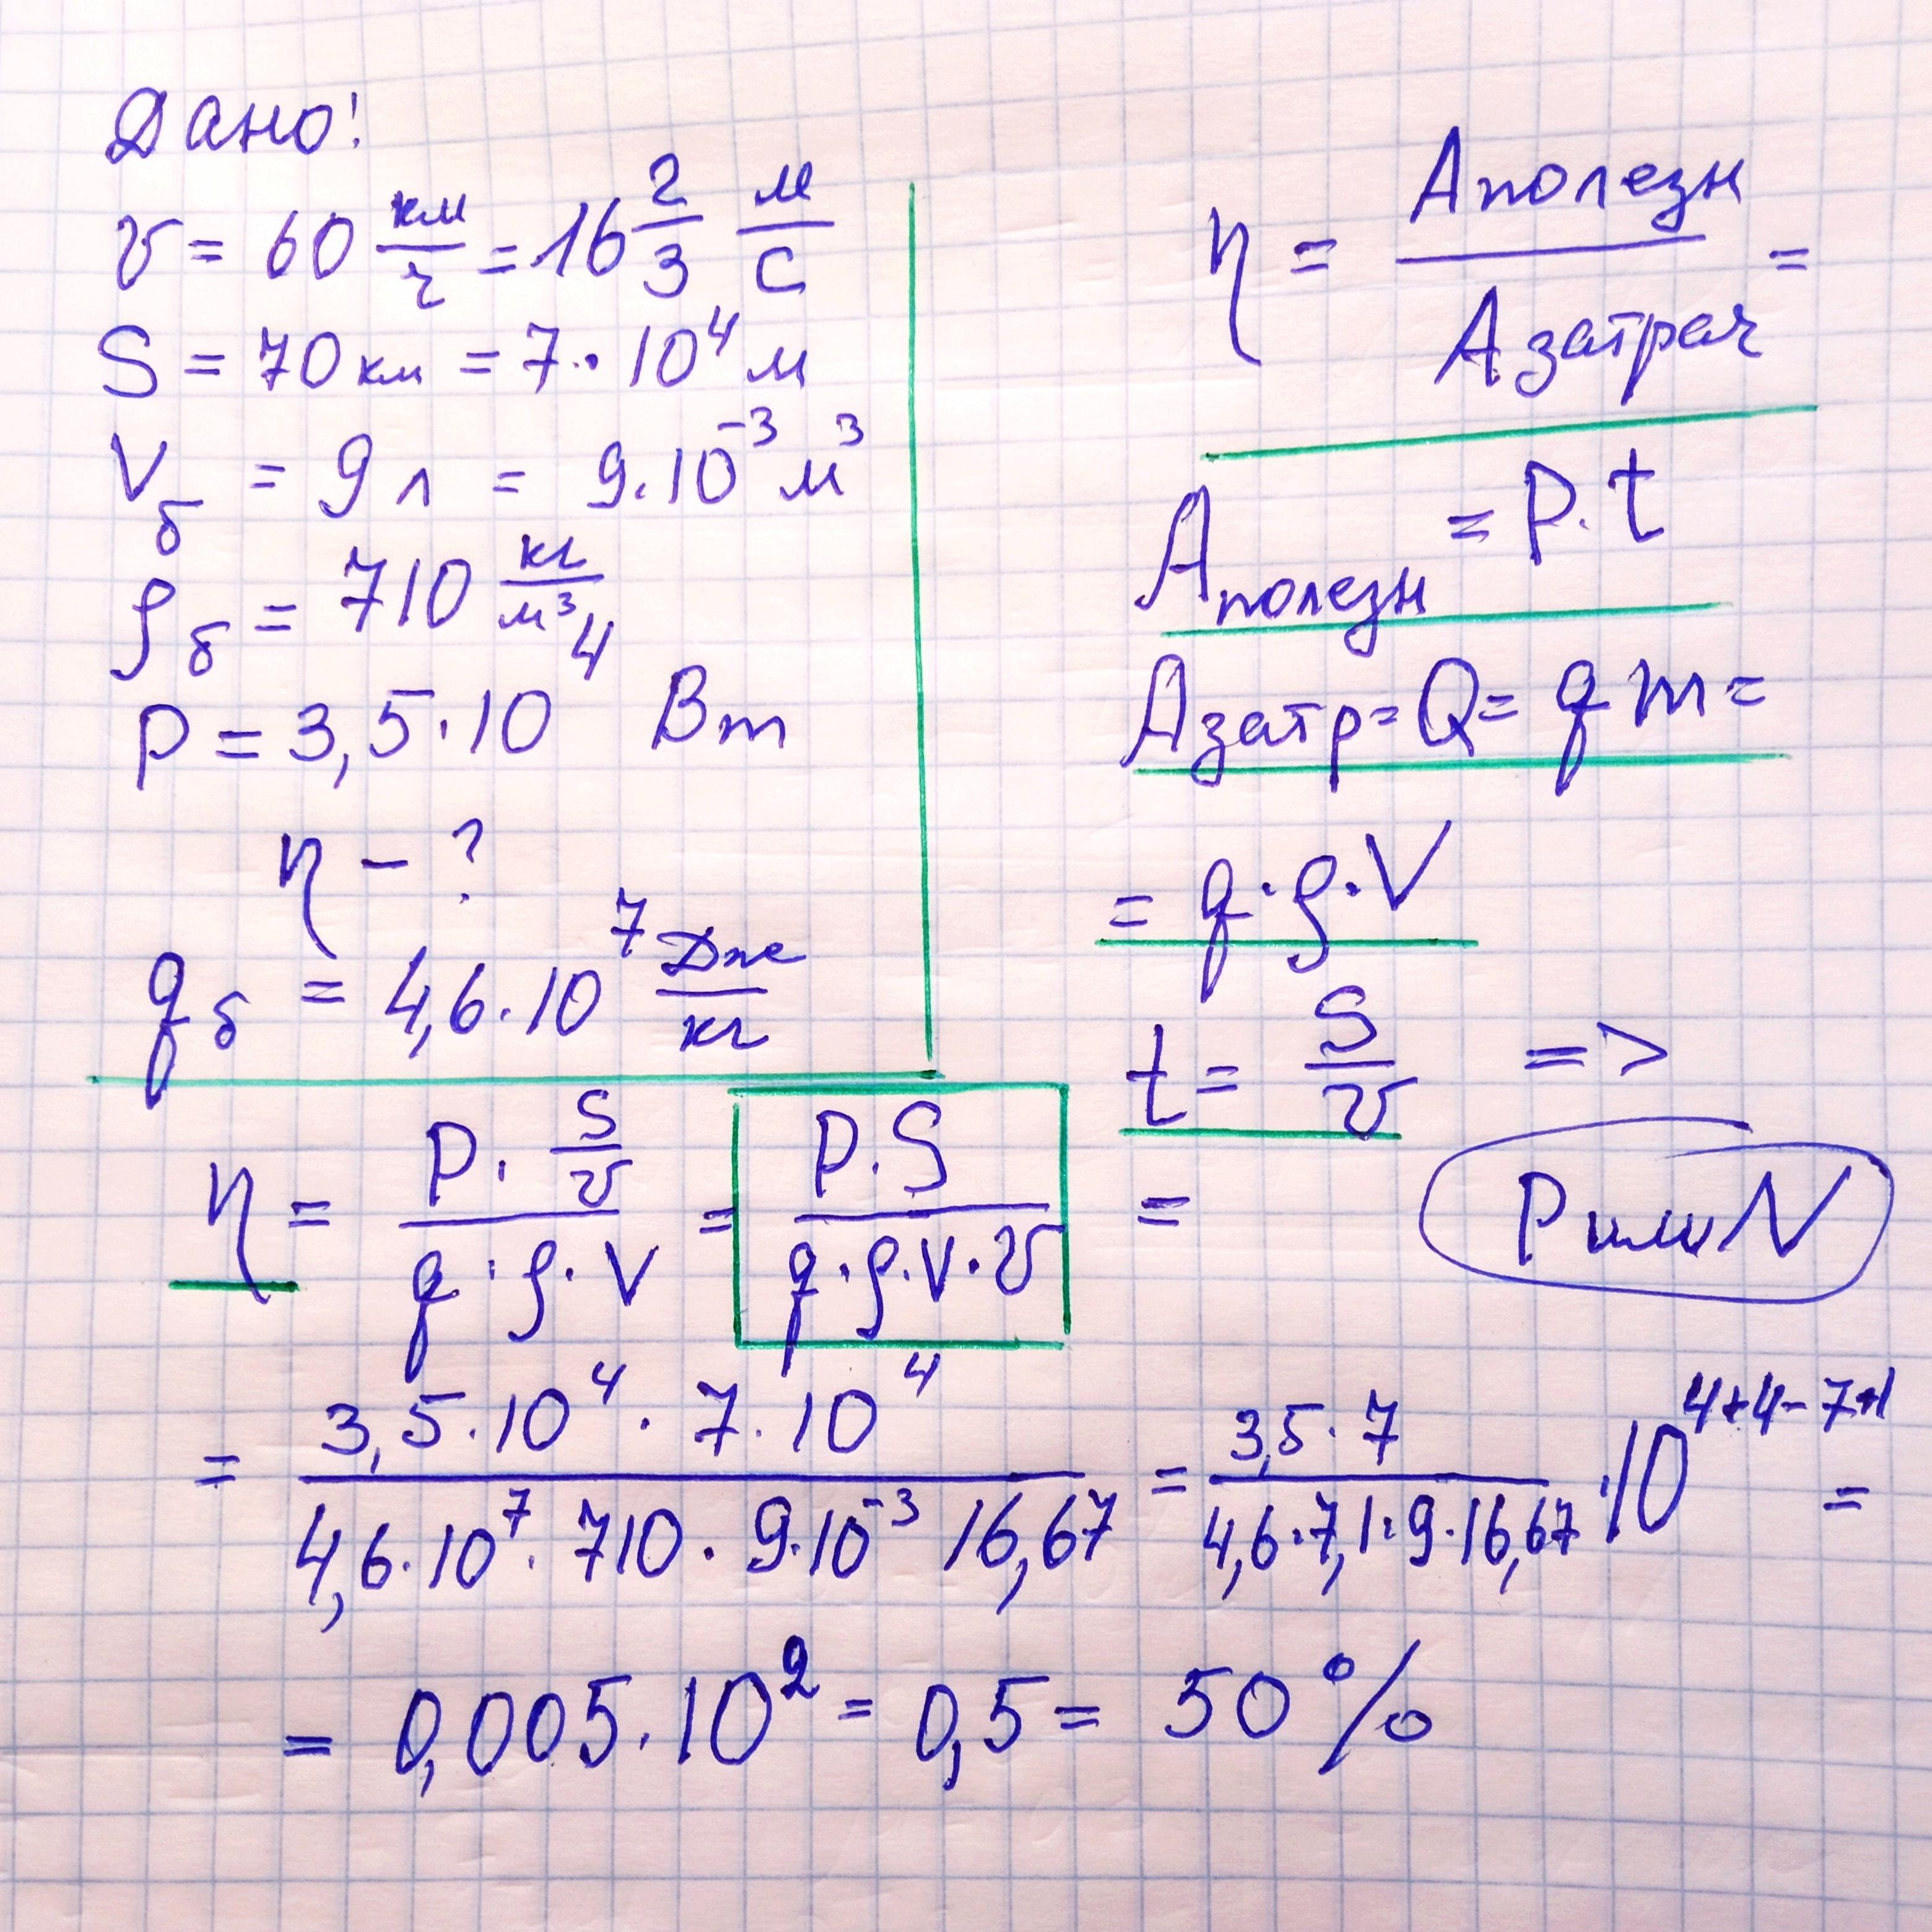 Дано!
v = 60 км/ч = 16 2/3 м/с
S = 70 км = 7·10⁴ м
V_б = 9 л = 9·10⁻³ м³
ρ_б = 710 кг/м³
P = 3,5·10⁴ Вт
η – ?
q_б = 4,6·10⁷ Дж/кг
η = Aполезн / Aзатрач =
Aполезн = P·t
Aзатр = Q = qm =
= q·ρ·V
t = S/v =>
P или N
η = (P·S/v) / (q·ρ·V) = (P·S) / (q·ρ·V·v) =
= (3,5·10⁴·7·10⁴) / (4,6·10⁷·710·9·10⁻³ 16,67) = (3,5·7) / (4,6·7,1·9·16,67) ·10⁴⁺⁴⁻⁷⁺¹ =
= 0,005·10² = 0,5 = 50 %